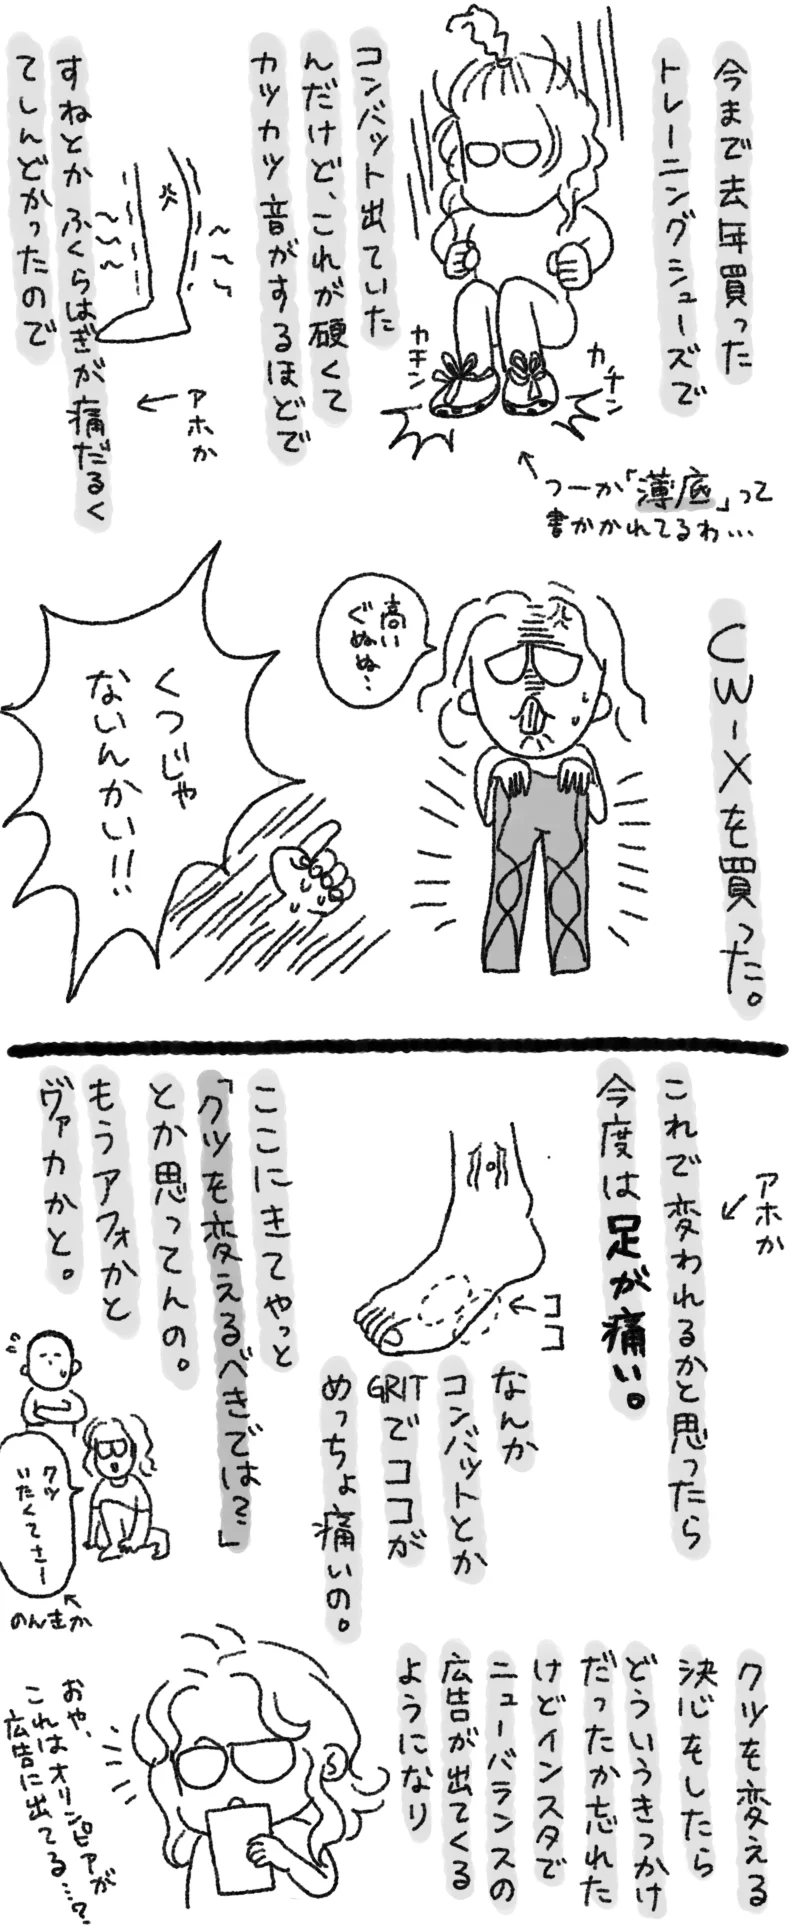 今まで去年買った
トレーニングシューズで
コンバット出ていた
んだけど、これが硬くて
カツカツ音がするほどで
カチン
カチン
つーか「薄底」って
書かかれてるわ…
すねとか ふくらはぎが痛だるく
てしんどかったので
アホか
CW-Xを買った。
高い
ぐぬぬ…
くつじゃ
ないんかい!!
アホか
これで変われるかと思ったら
今度は足が痛い。
ココ
なんか
コンバットとか
GRITでココが
めっちょ痛いの。
ここにきてやっと
「クツを変えるべきでは?」
とか思ってんの。
もうアフォかと
ヴァカかと。
クツ
いたくてさー
のんきか
クツを変える
決心をしたら
どういうきっかけ
だったか忘れた
けどインスタで
ニューバランスの
広告が出てくる
ようになり
おや、
これはオリンピアが
広告に出てる…?